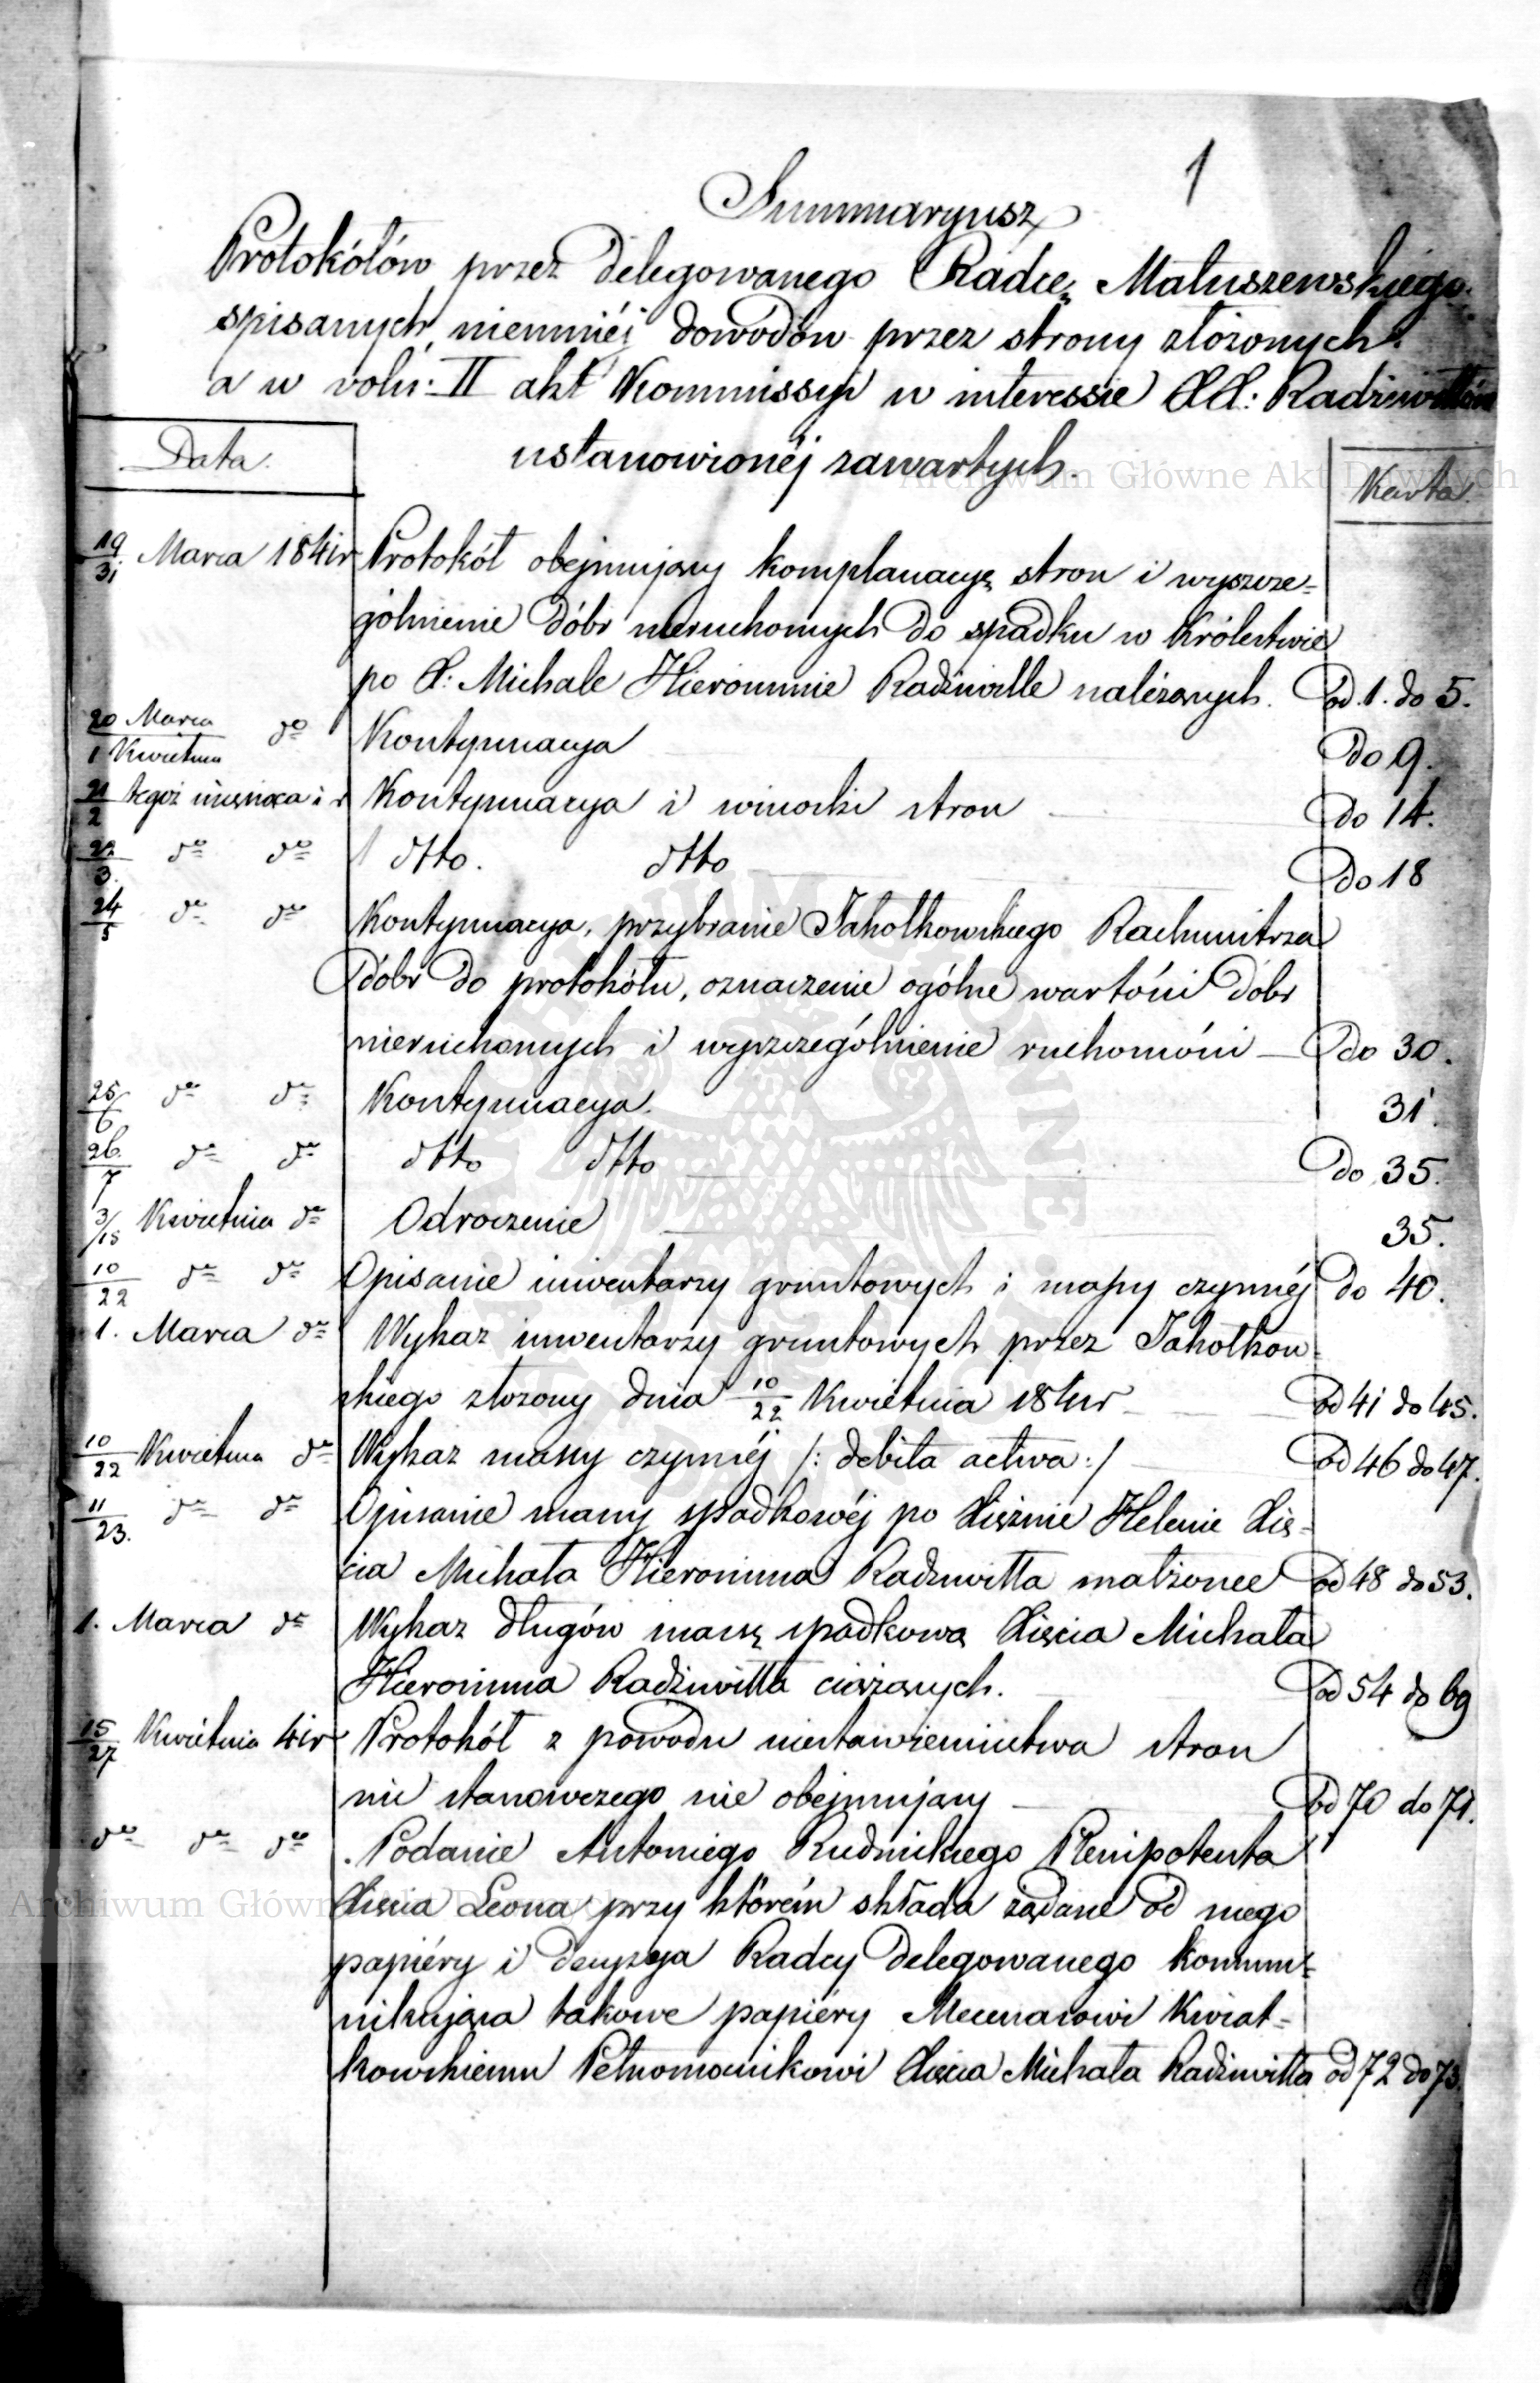 1
Summaryusz
Protokółów przez delegowanego Radcę Matuszewskiego
spisanych, niemniéj dowodów przez strony złożonych
a w volu: II akt Kommissyi w interessie XX: Radziwiłłów
ustanowionéj zawartych.
Data. Karta.
19/31 Marca 1841r Protokół obejmujący komplanacyę stron i wyszcze=
gólnienie dóbr nieruchomych do spadku w Królestwie
po X: Michale Hieronimie Radziwille należących. od. 1. do 5.
20 Marca / 1 Kwietnia do Kontynuacya do 9.
21/2 tegoż miesiąca i r Kontynuacya i wnioski stron do 14.
22/3. do do dtto. dtto do 18
24/5 do do Kontynuacya, przybranie Jakołkowskiego Rachmistrza
dóbr do protokółu, oznaczenie ogólne wartości dóbr
nieruchomych i wyszczególnienie ruchomości do 30.
25/6 do do Kontynuacya. 31.
26./7 do do dtto dtto do 35.
3/15 Kwietnia do Odroczenie 35.
10/22 do do Opisanie inwentarzy gruntowych i massy czynnéj do 40.
1. Marca do Wykaz inwentarzy gruntowych przez Jakołkow=
skiego złożony dnia 10/22 Kwietnia 1841r od 41 do 45.
10/22 Kwietnia do Wykaz massy czynnéj /: debita activa :/ od 46 do 47.
11/23. do do Opisanie massy spadkowéj po Xiężnie Helenie Xię=
cia Michała Hieronima Radziwiłła małżonce od 48 do 53.
1. Marca do Wykaz długów massę spadkową Xięcia Michała
Hieronima Radziwiłła ciążących. od 54 do 69
15/27 Kwietnia 41r Protokół z powodu niestawiennictwa stron
nic stanowczego nie obejmujący od 70 do 71.
do do do Podanie Antoniego Rudnickiego Plenipotenta
Xięcia Leona przy którém składa żądane od niego
papiéry i decyzya Radcy Delegowanego kommu=
nikująca takowe papiéry Mecenasowi Kwiat=
kowskiemu Pełnomocnikowi Xięcia Michała Radziwiłła od 72 do 73.
Archiwum Główne Akt Dawnych